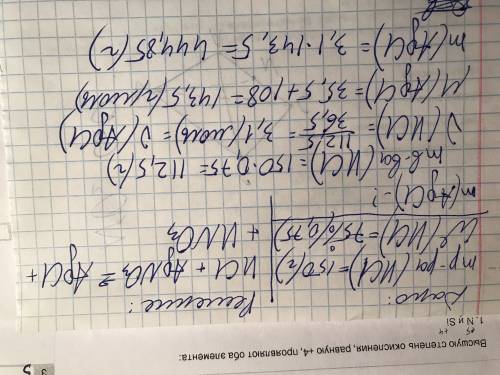 3
5
Высшую степень окисления, равную +4, проявляют оба элемента:
+5 +4
1. N и Si
Дано: Решение:
mр-ра(HCl)=150(г) HCl + AgNO₃ = AgCl +
W(HCl)=75%(0,75) + HNO₃
m(AgCl)-?
mв-ва(HCl)=150·0,75 = 112,5(г)
ν(HCl)= 112,5/36,5 = 3,1(моль)= ν(AgCl)
M(AgCl)= 35,5+108 = 143,5(г/моль)
m(AgCl)= 3,1·143,5 = 444,85(г)